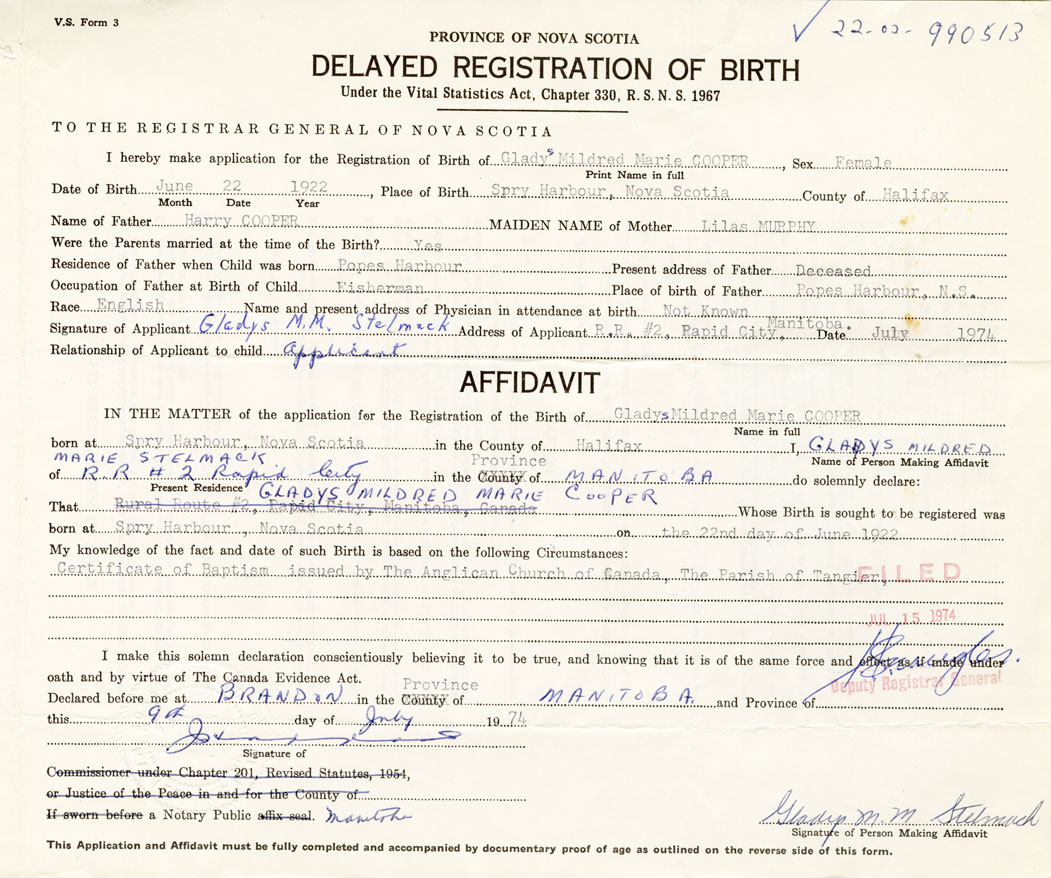 V.S. Form 3
✓ 22-02-990513
PROVINCE OF NOVA SCOTIA
DELAYED REGISTRATION OF BIRTH
Under the Vital Statistics Act, Chapter 330, R. S. N. S. 1967
TO THE REGISTRAR GENERAL OF NOVA SCOTIA
I hereby make application for the Registration of Birth of Gladys Mildred Marie COOPER, Sex Female
Print Name in full
Date of Birth June 22 1922, Place of Birth Spry Harbour, Nova Scotia County of Halifax
Month Date Year
Name of Father Harry COOPER MAIDEN NAME of Mother Lilas MURPHY
Were the Parents married at the time of the Birth? Yes
Residence of Father when Child was born Popes Harbour Present address of Father Deceased
Occupation of Father at Birth of Child Fisherman Place of birth of Father Popes Harbour, N.S.
Race English Name and present address of Physician in attendance at birth Not Known
Signature of Applicant Gladys M.M. Stelmack Address of Applicant R.R. #2, Rapid City, Manitoba. Date July 1974
Relationship of Applicant to child Applicant
AFFIDAVIT
IN THE MATTER of the application for the Registration of the Birth of Gladys Mildred Marie COOPER
Name in full
born at Spry Harbour, Nova Scotia in the County of Halifax I, GLADYS MILDRED
MARIE STELMACK Province Name of Person Making Affidavit
of R.R # 2 Rapid City in the County of MANITOBA do solemnly declare:
Present Residence GLADYS MILDRED MARIE COOPER
That Rural Route #2, Rapid City, Manitoba, Canada Whose Birth is sought to be registered was
born at Spry Harbour, Nova Scotia on the 22nd day of June 1922
My knowledge of the fact and date of such Birth is based on the following Circumstances:
Certificate of Baptism issued by The Anglican Church of Canada, The Parish of Tangier,
FILED
JUL 15 1974
I make this solemn declaration conscientiously believing it to be true, and knowing that it is of the same force and effect as if made under
oath and by virtue of The Canada Evidence Act.
Deputy Registrar General
Province
Declared before me at BRANDON in the County of MANITOBA. and Province of
this 9th day of July 1974
Signature of
Commissioner under Chapter 201, Revised Statutes, 1954,
or Justice of the Peace in and for the County of
If sworn before a Notary Public affix seal. Manitoba
Gladys M. M Stelmack
Signature of Person Making Affidavit
This Application and Affidavit must be fully completed and accompanied by documentary proof of age as outlined on the reverse side of this form.